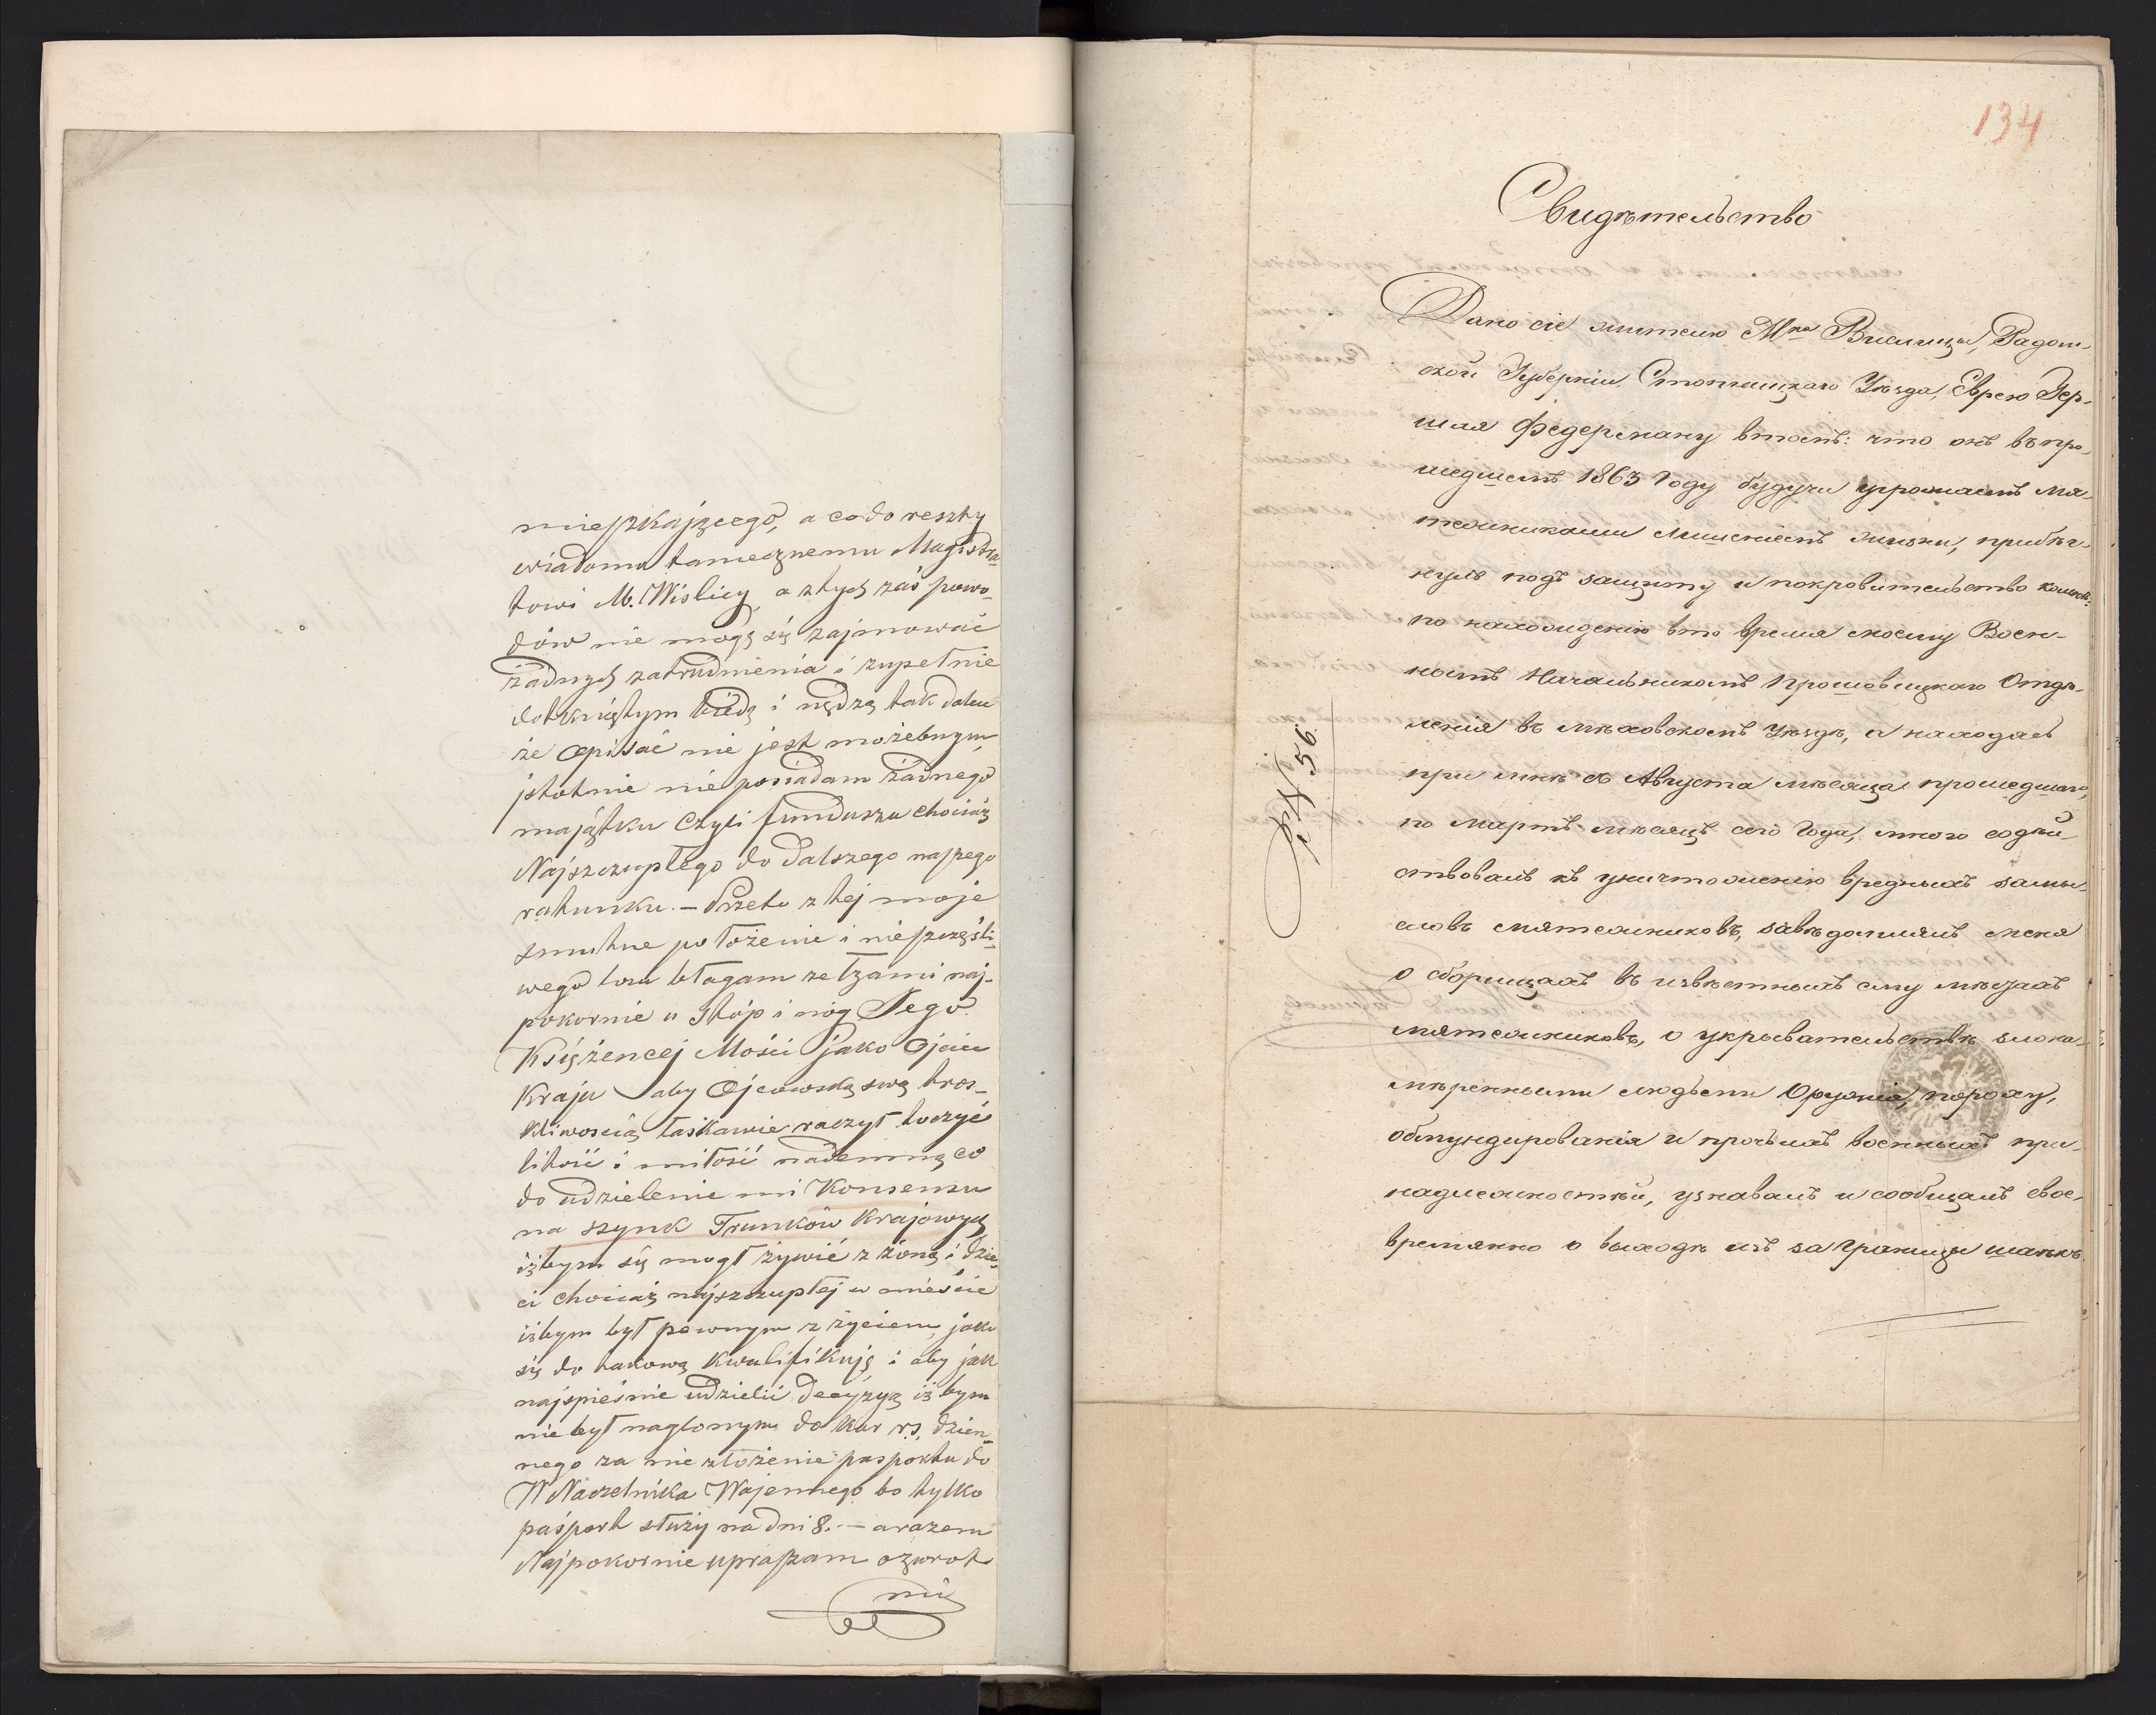 mieszkającego, a co do reszty
wiadomo tamecznemu Magistra-
towi M. Wislicy, a z tych zaś powo-
dów nie mogę się zajmować
żadnych zatrudnienia i zupełnie
dotkniętym biédą i nędzą tak daleu
że opisać nie jest możebnym
istotnie nie posiadam żadnego
majątku czyli funduszu chociaż
Najszczupłego do dalszego naszego
ratunku. — Przeto z tej moje
smutne położenie i nieszczęśli-
wego losu błagam ze łzami naj-
pokornie u stóp i nóg Jego
Książencej Mości jako Ojcu
Kraju aby Ojcowską swą tros-
kliwością łaskawie raczył toczyć
litość i miłość nademną co
do udzielenie mi Konsensu
na szynk Trunków Krajowych
iżbym się mogł żywić z żoną i dzie-
ci chociaż najszczupłej w mieście
iżbym był pewnym z życiem, jako
się do takową kwalifikuję i aby jak
najspieśnie udzielić decyzyą iż bym
nie był naglonym do kar rs. dzien-
nego za nie złożenie pasportu do
W Naczelnika Wojennego bo tylko
pasport służy na dni 8. — a razem
Najpokornie upraszam o zwrot
mi
134
Свидѣтельство
Дано сіе жителю М-ка Вислицы, Радом-
ской Губерніи Стопницкаго Уѣзда, Еврею Гер-
шля Федерману втомъ: что онъ въ про-
шедшемъ 1863 Году будучи угрожаемъ мя-
тежниками лишеніемъ жизни, прибѣг-
нулъ подъ защиту и покровительство
по нахожденію въ то время моему Воен-
нымъ Начальникомъ Прошовицкаго Отдѣ-
ленія въ Мѣховскомъ Уѣздѣ, и находясь
при мнѣ съ Августа мѣсяца прошедшаго,
по Мартъ мѣсяцъ сего Года, много содѣй-
ствовалъ къ уничтоженію вредныхъ замы-
словъ мятежниковъ, завѣдомлялъ меня
о сборищахъ въ извѣстныхъ ему мѣстахъ
мятежниковъ, о укрывательствѣ злона-
мѣренными людьми Оружія, пороху,
обмундированія и прочихъ военныхъ при-
надлежностей, узнавалъ и сообщалъ свое-
временно о выходѣ изъ за Границы шаекъ
№ 56.